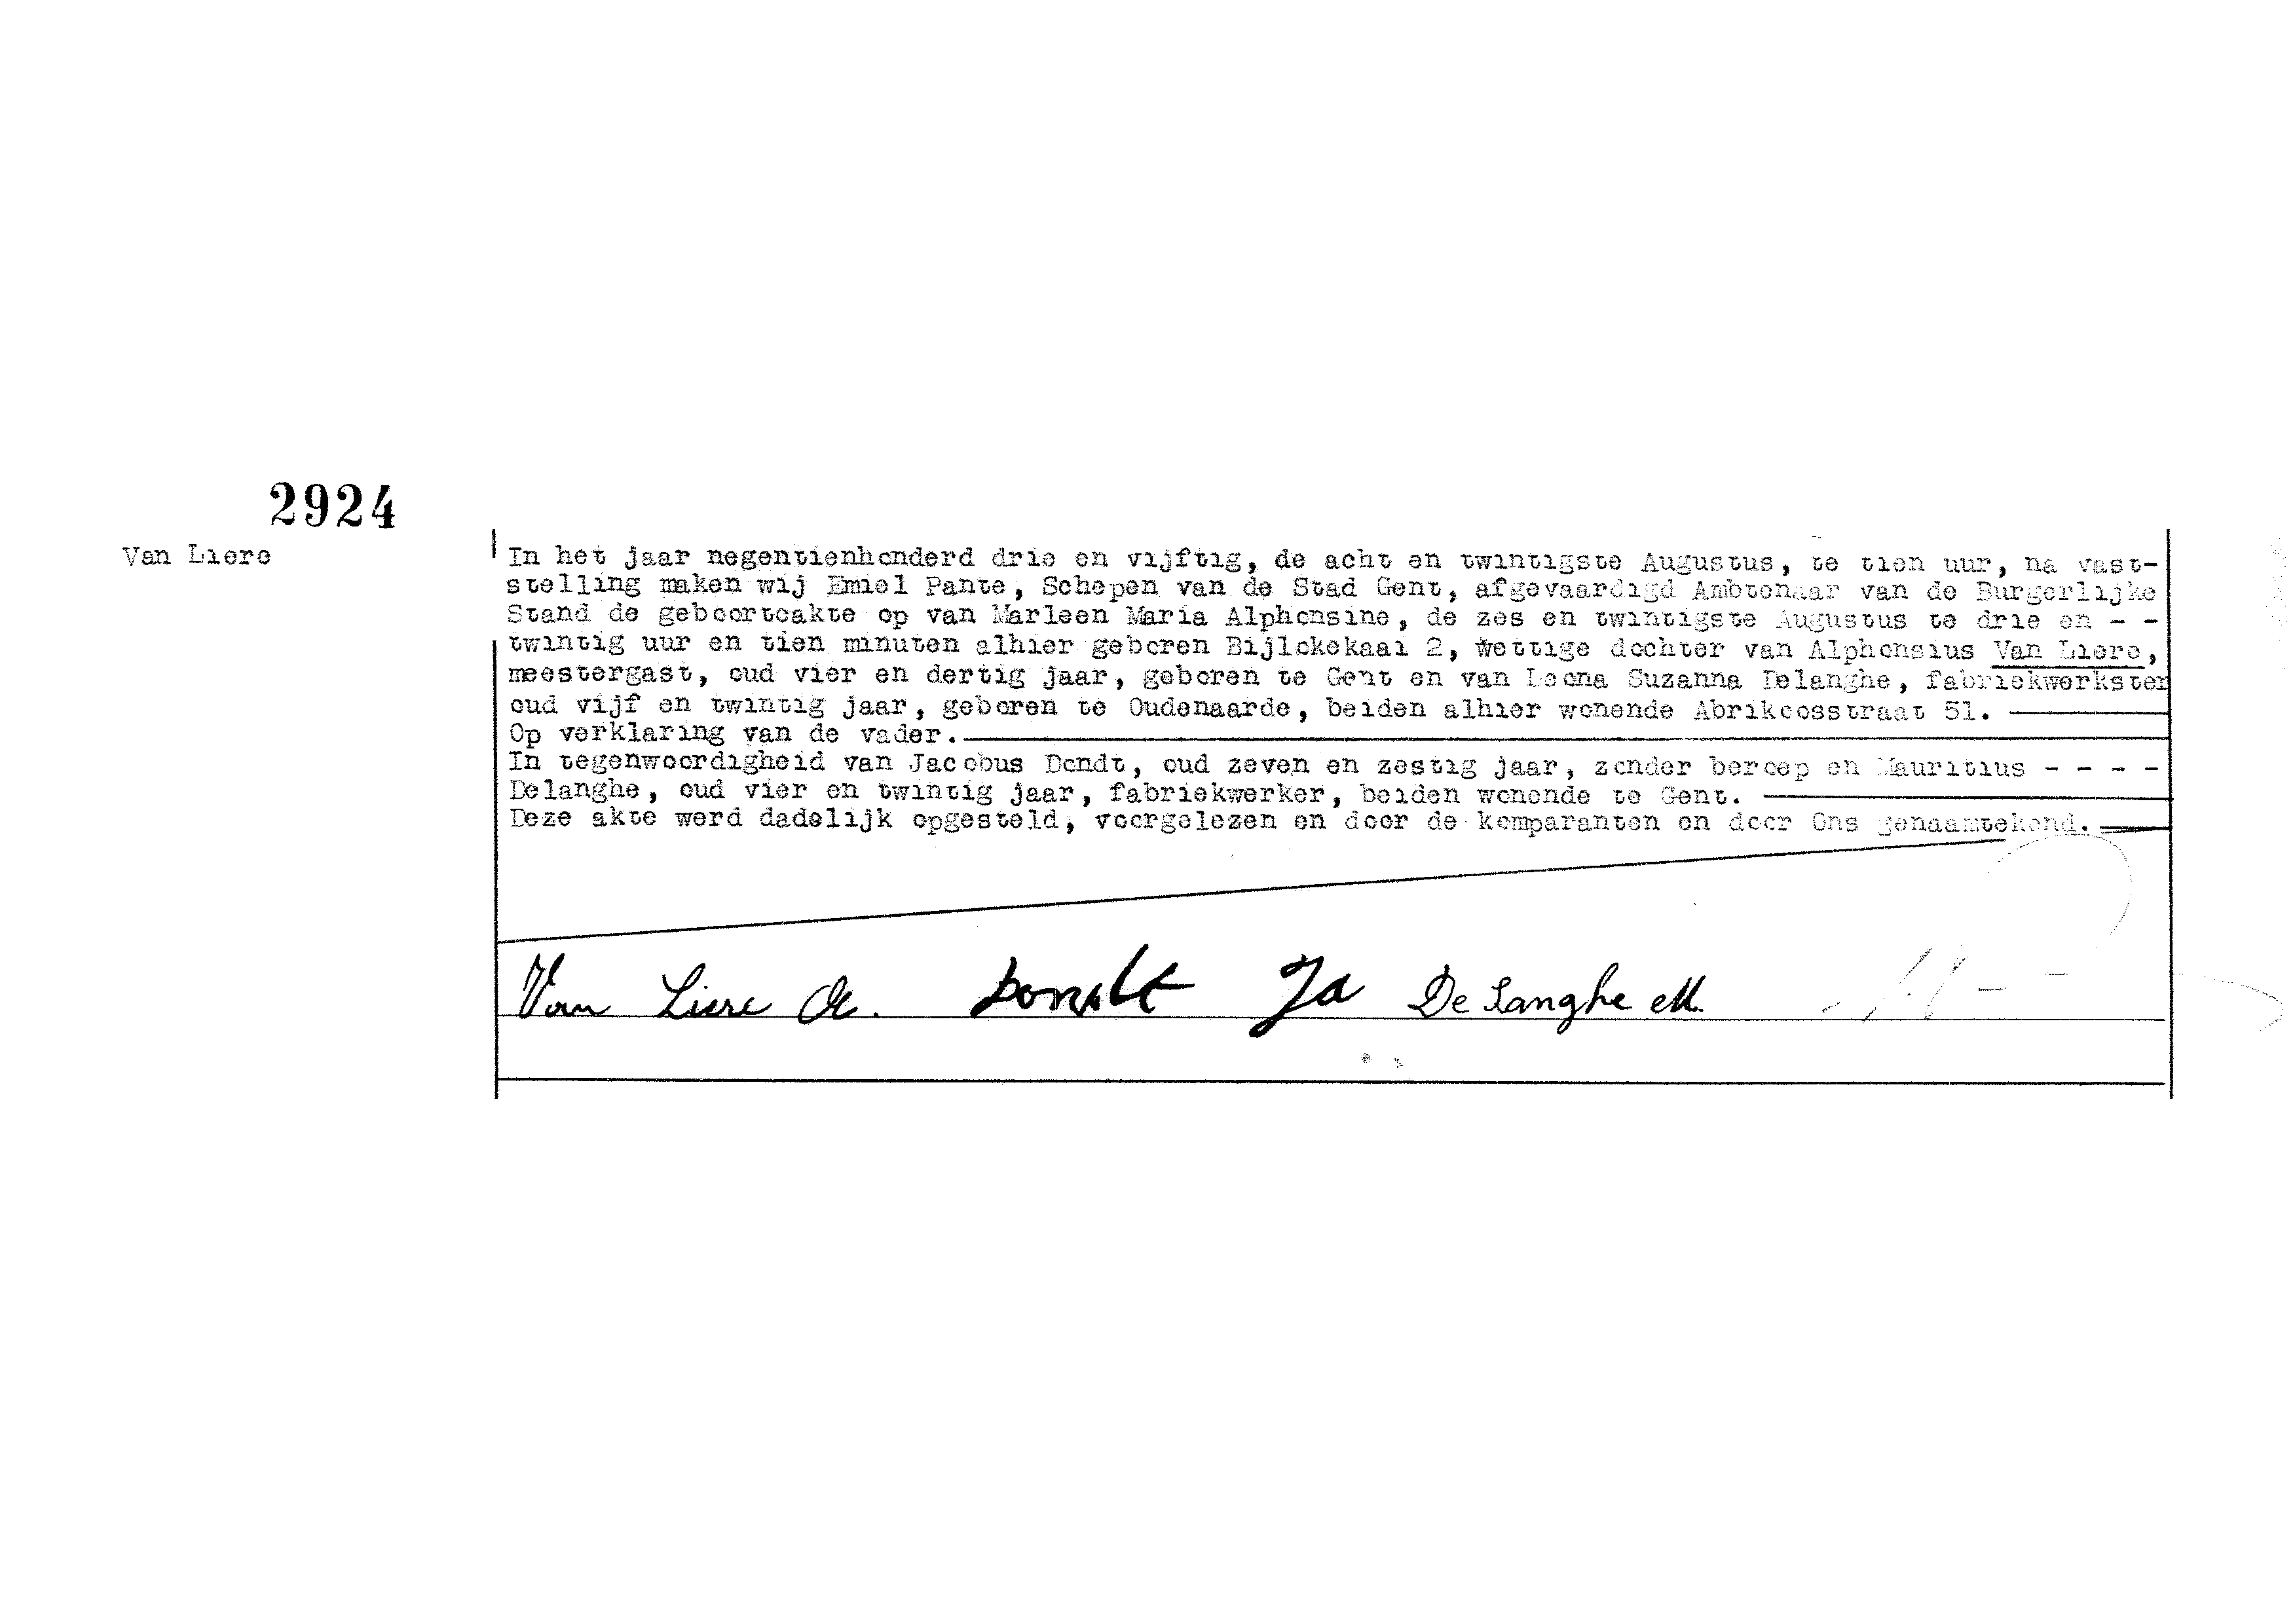 2924
Van Liere
In het jaar negentienhonderd drie en vijftig, de acht en twintigste Augustus, te tien uur, na vast-
stelling maken wij Emiel Pante, Schepen van de Stad Gent, afgevaardigd Ambtenaar van de Burgerlijke
Stand de geboorteakte op van Marleen Maria Alphonsine, de zes en twintigste Augustus te drie en - -
twintig uur en tien minuten alhier geboren Bijlokekaai 2, wettige dochter van Alphonsius Van Liere,
meestergast, oud vier en dertig jaar, geboren te Gent en van Leona Suzanna Delanghe, fabriekwerkster
oud vijf en twintig jaar, geboren te Oudenaarde, beiden alhier wonende Abrikoosstraat 51.
Op verklaring van de vader.
In tegenwoordigheid van Jacobus Dondt, oud zeven en zestig jaar, zonder beroep en Mauritius - - - -
Delanghe, oud vier en twintig jaar, fabriekwerker, beiden wonende te Gent.
Deze akte werd dadelijk opgesteld, voorgelezen en door de komparanten en door Ons genaamtekend.
Van Liere A. Dondt Ja De Langhe M.